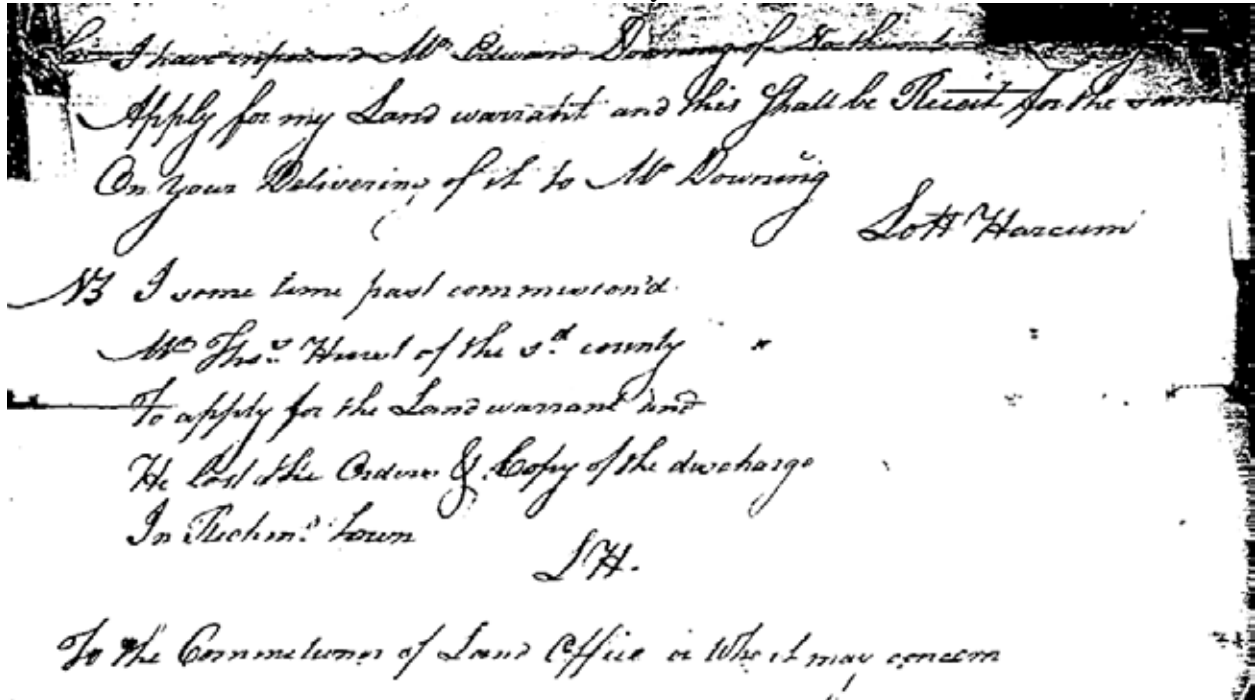 Sir I have impowered Mr Edward Downing of Northumb
Apply for my Land warrant and this Shall be Riceit for the same
On your Delivering of it to Mr Downing
Lott Harcum
NB I some time past commission'd
Mr Thos Hurst of the sd county
To apply for the Land warrant and
He lost the Orders & Copy of the discharge
In Richmd Town
LH.
To the Commitioner of Land Office or Who it may concern